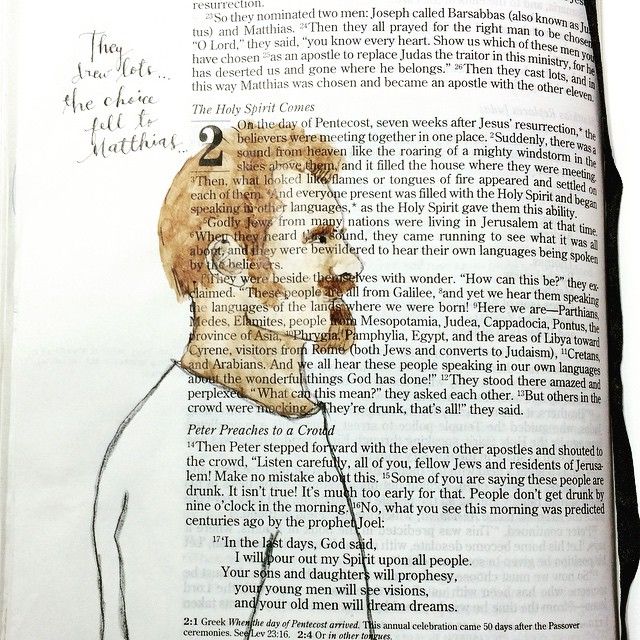 They
drew lots...
the choice
fell to
Matthias...
resurrection.
23So they nominated two men: Joseph called Barsabbas (also known as Ju
tus) and Matthias. 24Then they all prayed for the right man to be chosen
"O Lord," they said, "you know every heart. Show us which of these men you
have chosen 25as an apostle to replace Judas the traitor in this ministry, for he
has deserted us and gone where he belongs." 26Then they cast lots, and in
this way Matthias was chosen and became an apostle with the other eleven.
The Holy Spirit Comes
2 On the day of Pentecost, seven weeks after Jesus' resurrection,* the
believers were meeting together in one place. 2Suddenly, there was a
sound from heaven like the roaring of a mighty windstorm in the
skies above them, and it filled the house where they were meeting.
3Then, what looked like flames or tongues of fire appeared and settled on
each of them. 4And everyone present was filled with the Holy Spirit and began
speaking in other languages,* as the Holy Spirit gave them this ability.
5Godly Jews from many nations were living in Jerusalem at that time.
6When they heard this sound, they came running to see what it was all
about, and they were bewildered to hear their own languages being spoken
by the believers.
7They were beside themselves with wonder. "How can this be?" they ex-
claimed. "These people are all from Galilee, 8and yet we hear them speaking
the languages of the lands where we were born! 9Here we are—Parthians,
Medes, Elamites, people from Mesopotamia, Judea, Cappadocia, Pontus, the
province of Asia, 10Phrygia, Pamphylia, Egypt, and the areas of Libya toward
Cyrene, visitors from Rome (both Jews and converts to Judaism), 11Cretans,
and Arabians. And we all hear these people speaking in our own languages
about the wonderful things God has done!" 12They stood there amazed and
perplexed. "What can this mean?" they asked each other. 13But others in the
crowd were mocking. "They're drunk, that's all!" they said.
Peter Preaches to a Crowd
14Then Peter stepped forward with the eleven other apostles and shouted to
the crowd, "Listen carefully, all of you, fellow Jews and residents of Jerusa-
lem! Make no mistake about this. 15Some of you are saying these people are
drunk. It isn't true! It's much too early for that. People don't get drunk by
nine o'clock in the morning. 16No, what you see this morning was predicted
centuries ago by the prophet Joel:
17'In the last days, God said,
I will pour out my Spirit upon all people.
Your sons and daughters will prophesy,
your young men will see visions,
and your old men will dream dreams.
2:1 Greek When the day of Pentecost arrived. This annual celebration came 50 days after the Passover
ceremonies. See Lev 23:16. 2:4 Or in other tongues.